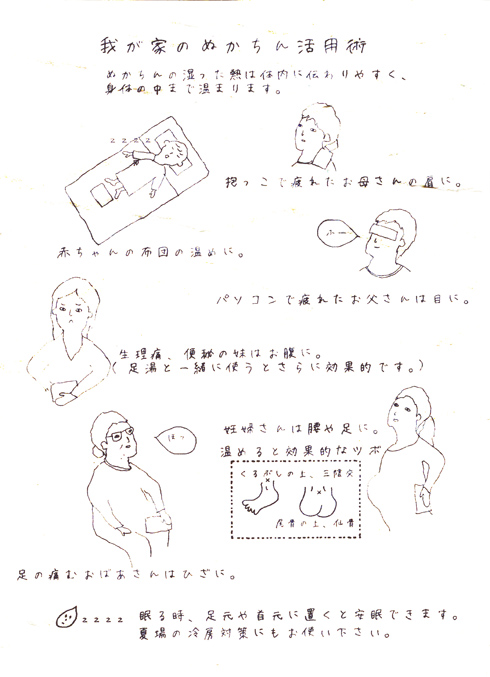 我が家のぬかちん活用術
ぬかちんの湿った熱は体内に伝わりやすく、
身体の中まで温まります。
zzzz
抱っこで疲れたお母さんの肩に。
赤ちゃんの布団の温めに。
ふー
パソコンで疲れたお父さんは目に。
生理痛、便秘の妹はお腹に。
(足湯と一緒に使うとさらに効果的です。)
ほっ
妊婦さんは腰や足に。
温めると効果的なツボ
くるぶしの上、三陰交
尾骨の上、仙骨
足の痛むおばあさんはひざに。
zzzz 眠る時、足元や首元に置くと安眠できます。
夏場の冷房対策にもお使い下さい。